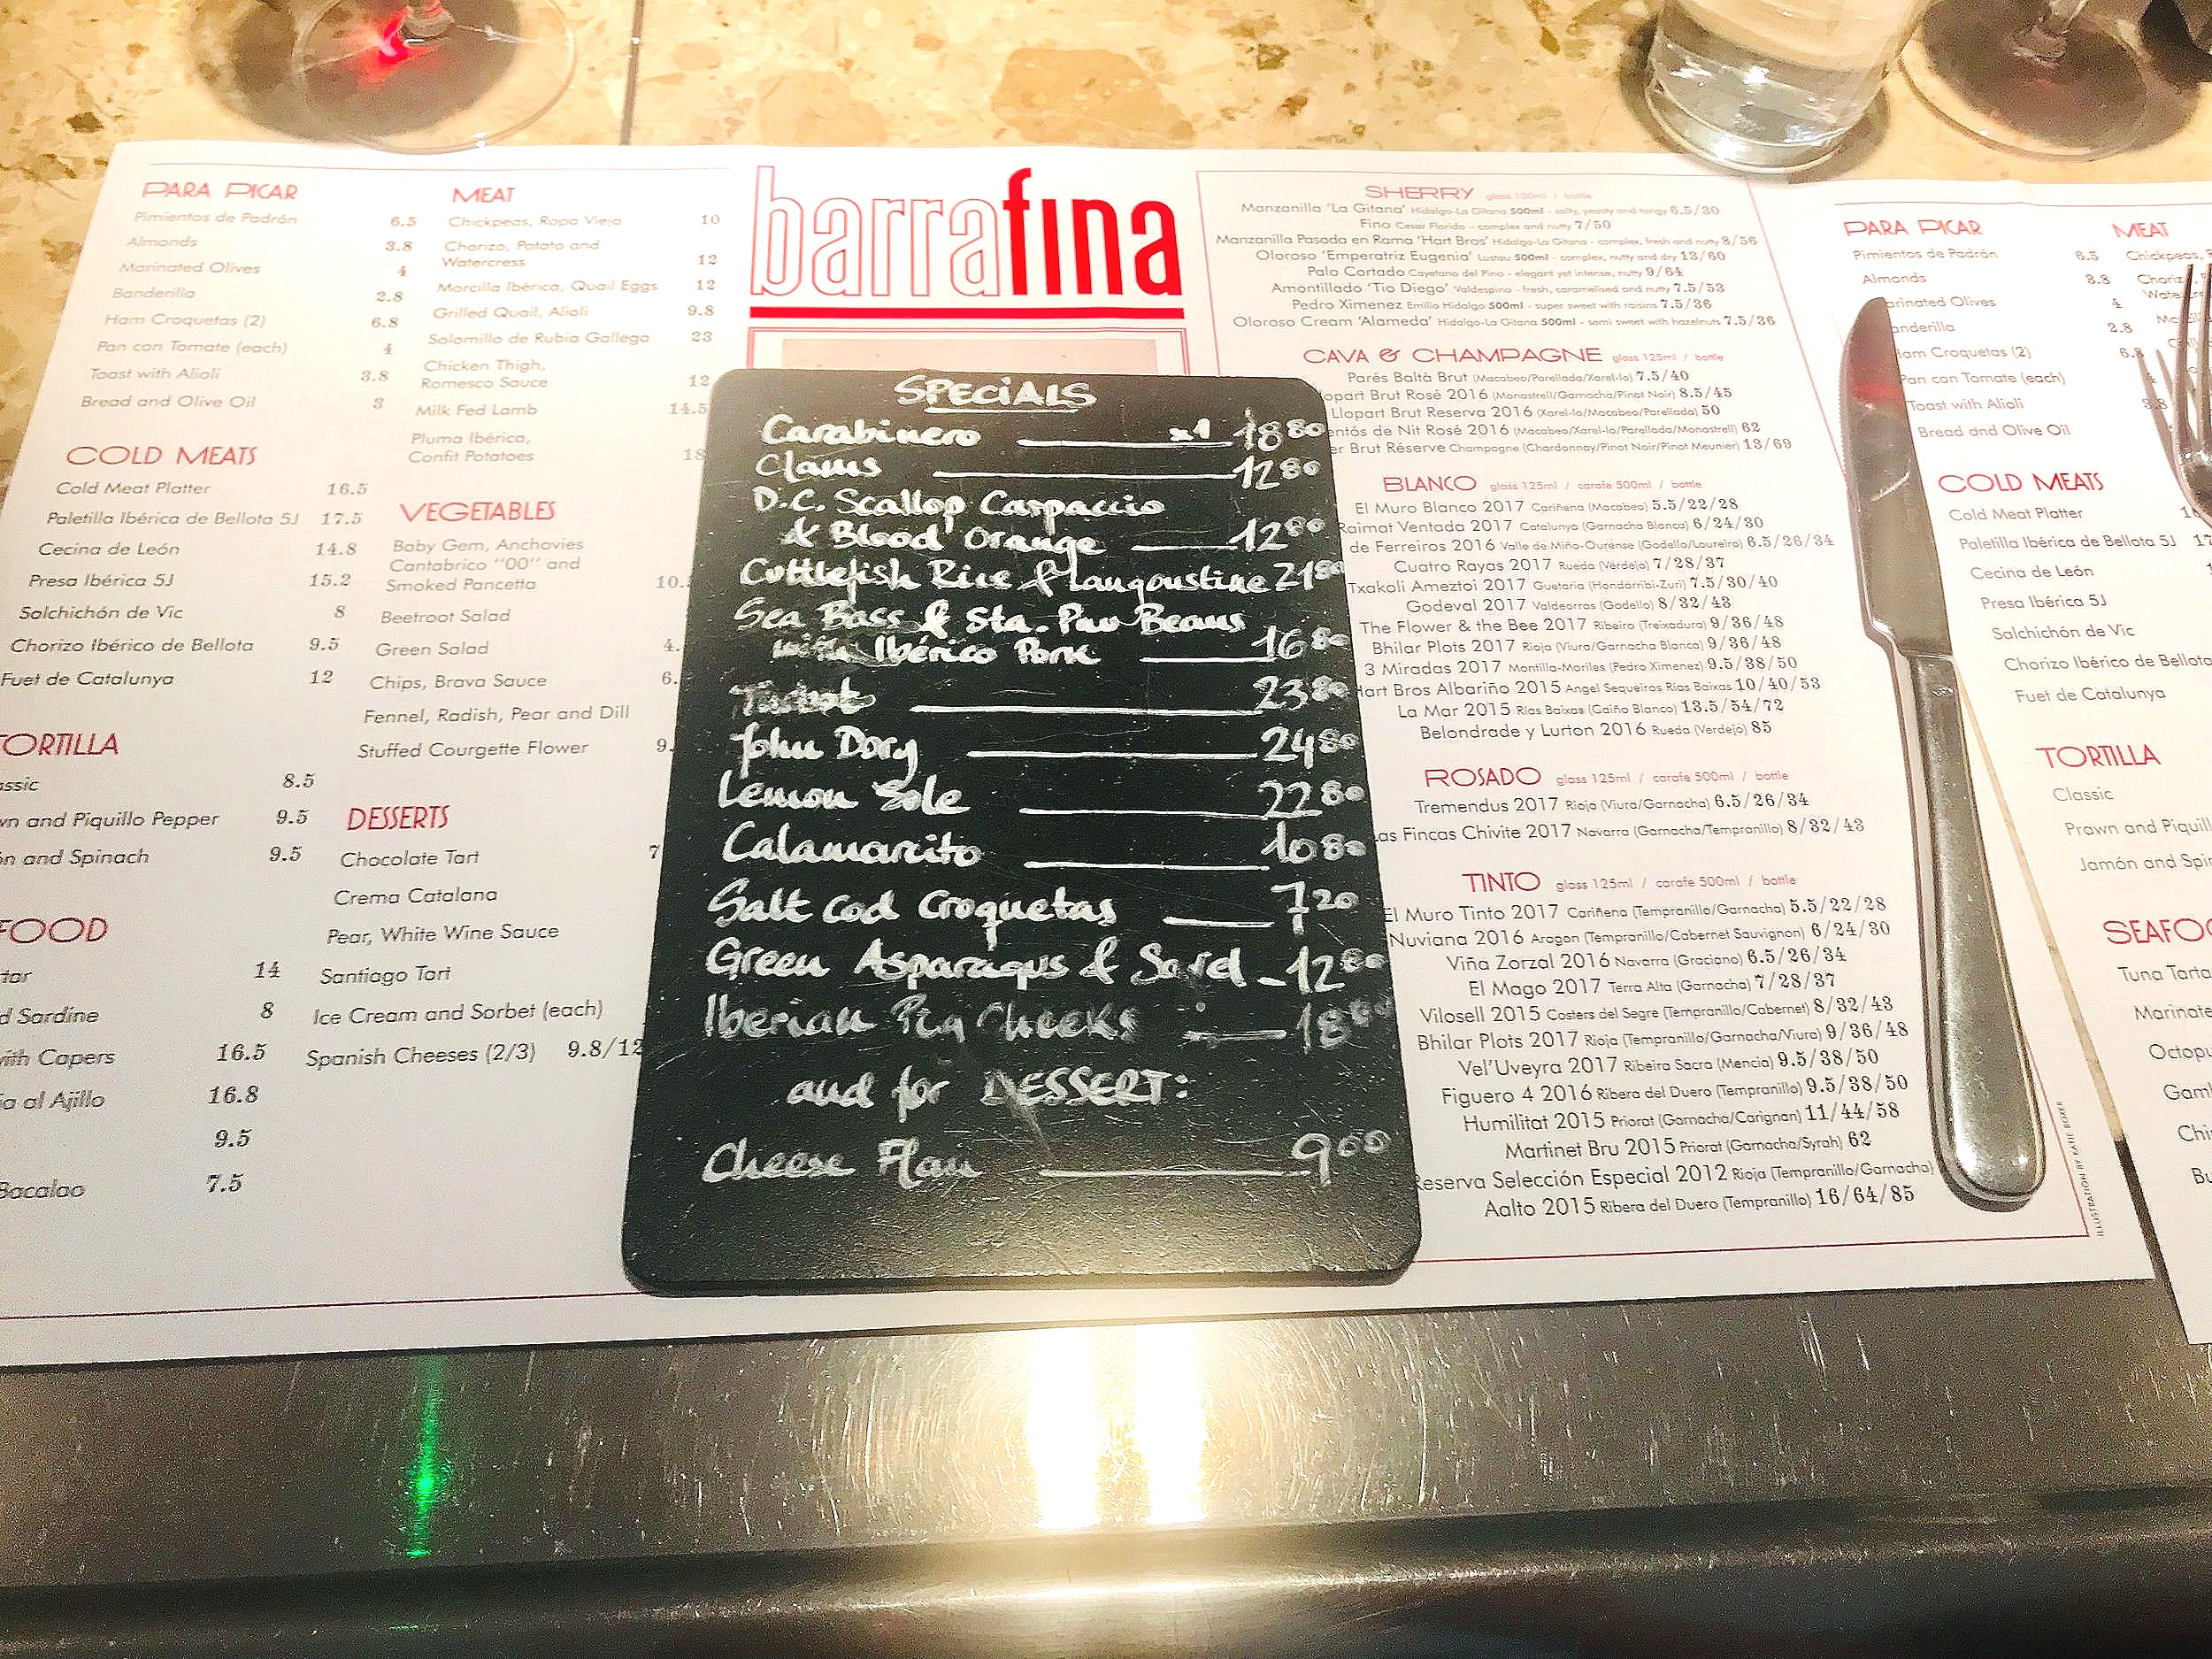 barrafina
PARA PICAR
Pimientos de Padrón 6.5
Almonds 3.8
Marinated Olives 4
Banderilla 2.8
Ham Croquetas (2) 6.8
Pan con Tomate (each) 4
Toast with Alioli 3.8
Bread and Olive Oil 3
COLD MEATS
Cold Meat Platter 16.5
Paletilla Ibérica de Bellota 5J 17.5
Cecina de León 14.8
Presa Ibérica 5J 15.2
Salchichón de Vic 8
Chorizo Ibérico de Bellota 9.5
Fuet de Catalunya 12
TORTILLA
8.5
and Piquillo Pepper 9.5
and Spinach 9.5
FOOD
14
Sardine 8
with Capers 16.5
al Ajillo 16.8
9.5
Bacalao 7.5
MEAT
Chickpeas, Ropa Vieja 10
Chorizo, Potato and
Watercress 12
Morcilla Ibérica, Quail Eggs 12
Grilled Quail, Alioli 9.8
Solomillo de Rubia Gallega 23
Chicken Thigh,
Romesco Sauce 12
Milk Fed Lamb 14.5
Pluma Ibérica,
Confit Potatoes 18
VEGETABLES
Baby Gem, Anchovies
Cantabrico "00" and
Smoked Pancetta 10.
Beetroot Salad
Green Salad 4.
Chips, Brava Sauce 6.
Fennel, Radish, Pear and Dill
Stuffed Courgette Flower 9.
DESSERTS
Chocolate Tart 7
Crema Catalana
Pear, White Wine Sauce
Santiago Tart
Ice Cream and Sorbet (each)
Spanish Cheeses (2/3) 9.8/12
SPECIALS
Carabinero x1 18 80
Clams 12 80
D.C. Scallop Carpaccio
& Blood Orange 12 80
Cuttlefish Rice & Langoustine 21 80
Sea Bass & Sta. Pau Beans
with Ibérico Pork 16 80
Turbot 23 80
John Dory 24 80
Lemon Sole 22 80
Calamarcito 10 80
Salt Cod Croquetas 7 20
Green Asparagus & 12 80
Iberian Pig Cheeks 18
and for DESSERT:
Cheese Flan 9 00
SHERRY glass 100ml / bottle
Manzanilla 'La Gitana' Hidalgo-La Gitana 500ml - salty, yeasty and tangy 6.5/30
Fino Cesar Florido - complex and nutty 7/50
Manzanilla Pasada en Rama 'Hart Bros' Hidalgo-La Gitana - complex, fresh and nutty 8/56
Oloroso 'Emperatriz Eugenia' Lustau 500ml - complex, nutty and dry 13/60
Palo Cortado Cayetano del Pino - elegant yet intense, nutty 9/64
Amontillado 'Tio Diego' Valdespino - fresh, caramelised and nutty 7.5/53
Pedro Ximenez Emilio Hidalgo 500ml - super sweet with raisins 7.5/36
Oloroso Cream 'Alameda' Hidalgo-La Gitana 500ml - semi sweet with hazelnuts 7.5/36
CAVA & CHAMPAGNE glass 125ml / bottle
Parés Baltà Brut (Macabeo/Parellada/Xarel-lo) 7.5/40
lopart Brut Rosé 2016 (Monastrell/Garnacha/Pinot Noir) 8.5/45
Llopart Brut Reserva 2016 (Xarel-lo/Macabeo/Parellada) 50
entós de Nit Rosé 2016 (Macabeo/Xarel-lo/Parellada/Monastrell) 62
er Brut Réserve Champagne (Chardonnay/Pinot Noir/Pinot Meunier) 13/69
BLANCO glass 125ml / carafe 500ml / bottle
El Muro Blanco 2017 Cariñena (Macabeo) 5.5/22/28
Raimat Ventada 2017 Catalunya (Garnacha Blanca) 6/24/30
de Ferreiros 2016 Valle de Miño-Ourense (Godello/Loureiro) 6.5/26/34
Cuatro Rayas 2017 Rueda (Verdejo) 7/28/37
Txakoli Ameztoi 2017 Guetaria (Hondarribi-Zuri) 7.5/30/40
Godeval 2017 Valdeorras (Godello) 8/32/43
The Flower & the Bee 2017 Ribeiro (Treixadura) 9/36/48
Bhilar Plots 2017 Rioja (Viura/Garnacha Blanca) 9/36/48
3 Miradas 2017 Montilla-Moriles (Pedro Ximenez) 9.5/38/50
Hart Bros Albariño 2015 Angel Sequeiros Rias Baixas 10/40/53
La Mar 2015 Rias Baixas (Caiño Blanco) 13.5/54/72
Belondrade y Lurton 2016 Rueda (Verdejo) 85
ROSADO glass 125ml / carafe 500ml / bottle
Tremendus 2017 Rioja (Viura/Garnacha) 6.5/26/34
as Fincas Chivite 2017 Navarra (Garnacha/Tempranillo) 8/32/43
TINTO glass 125ml / carafe 500ml / bottle
El Muro Tinto 2017 Cariñena (Tempranillo/Garnacha) 5.5/22/28
Nuviana 2016 Aragon (Tempranillo/Cabernet Sauvignon) 6/24/30
Viña Zorzal 2016 Navarra (Graciano) 6.5/26/34
El Mago 2017 Terra Alta (Garnacha) 7/28/37
Vilosell 2015 Costers del Segre (Tempranillo/Cabernet) 8/32/43
Bhilar Plots 2017 Rioja (Tempranillo/Garnacha/Viura) 9/36/48
Vel'Uveyra 2017 Ribeira Sacra (Mencia) 9.5/38/50
Figuero 4 2016 Ribera del Duero (Tempranillo) 9.5/38/50
Humilitat 2015 Priorat (Garnacha/Carignan) 11/44/58
Martinet Bru 2015 Priorat (Garnacha/Syrah) 62
Reserva Selección Especial 2012 Rioja (Tempranillo/Garnacha)
Aalto 2015 Ribera del Duero (Tempranillo) 16/64/85
ILLUSTRATION BY KATIE BOXER
PARA PICAR
Pimientos de Padrón 6.5
Almonds 3.8
arinated Olives 4
anderilla 2.8
Ham Croquetas (2) 6.8
Pan con Tomate (each)
Toast with Alioli 3.8
Bread and Olive Oil
COLD MEATS
Cold Meat Platter
Paletilla Ibérica de Bellota 5J 17
Cecina de León
Presa Ibérica 5J
Salchichón de Vic
Chorizo Ibérico de Bellota
Fuet de Catalunya
TORTILLA
Classic
Prawn and Piquill
Jamón and Spi
SEAFO
Tuna Tarta
Marinate
Octopu
Gam
Chi
MEAT
Chickpeas,